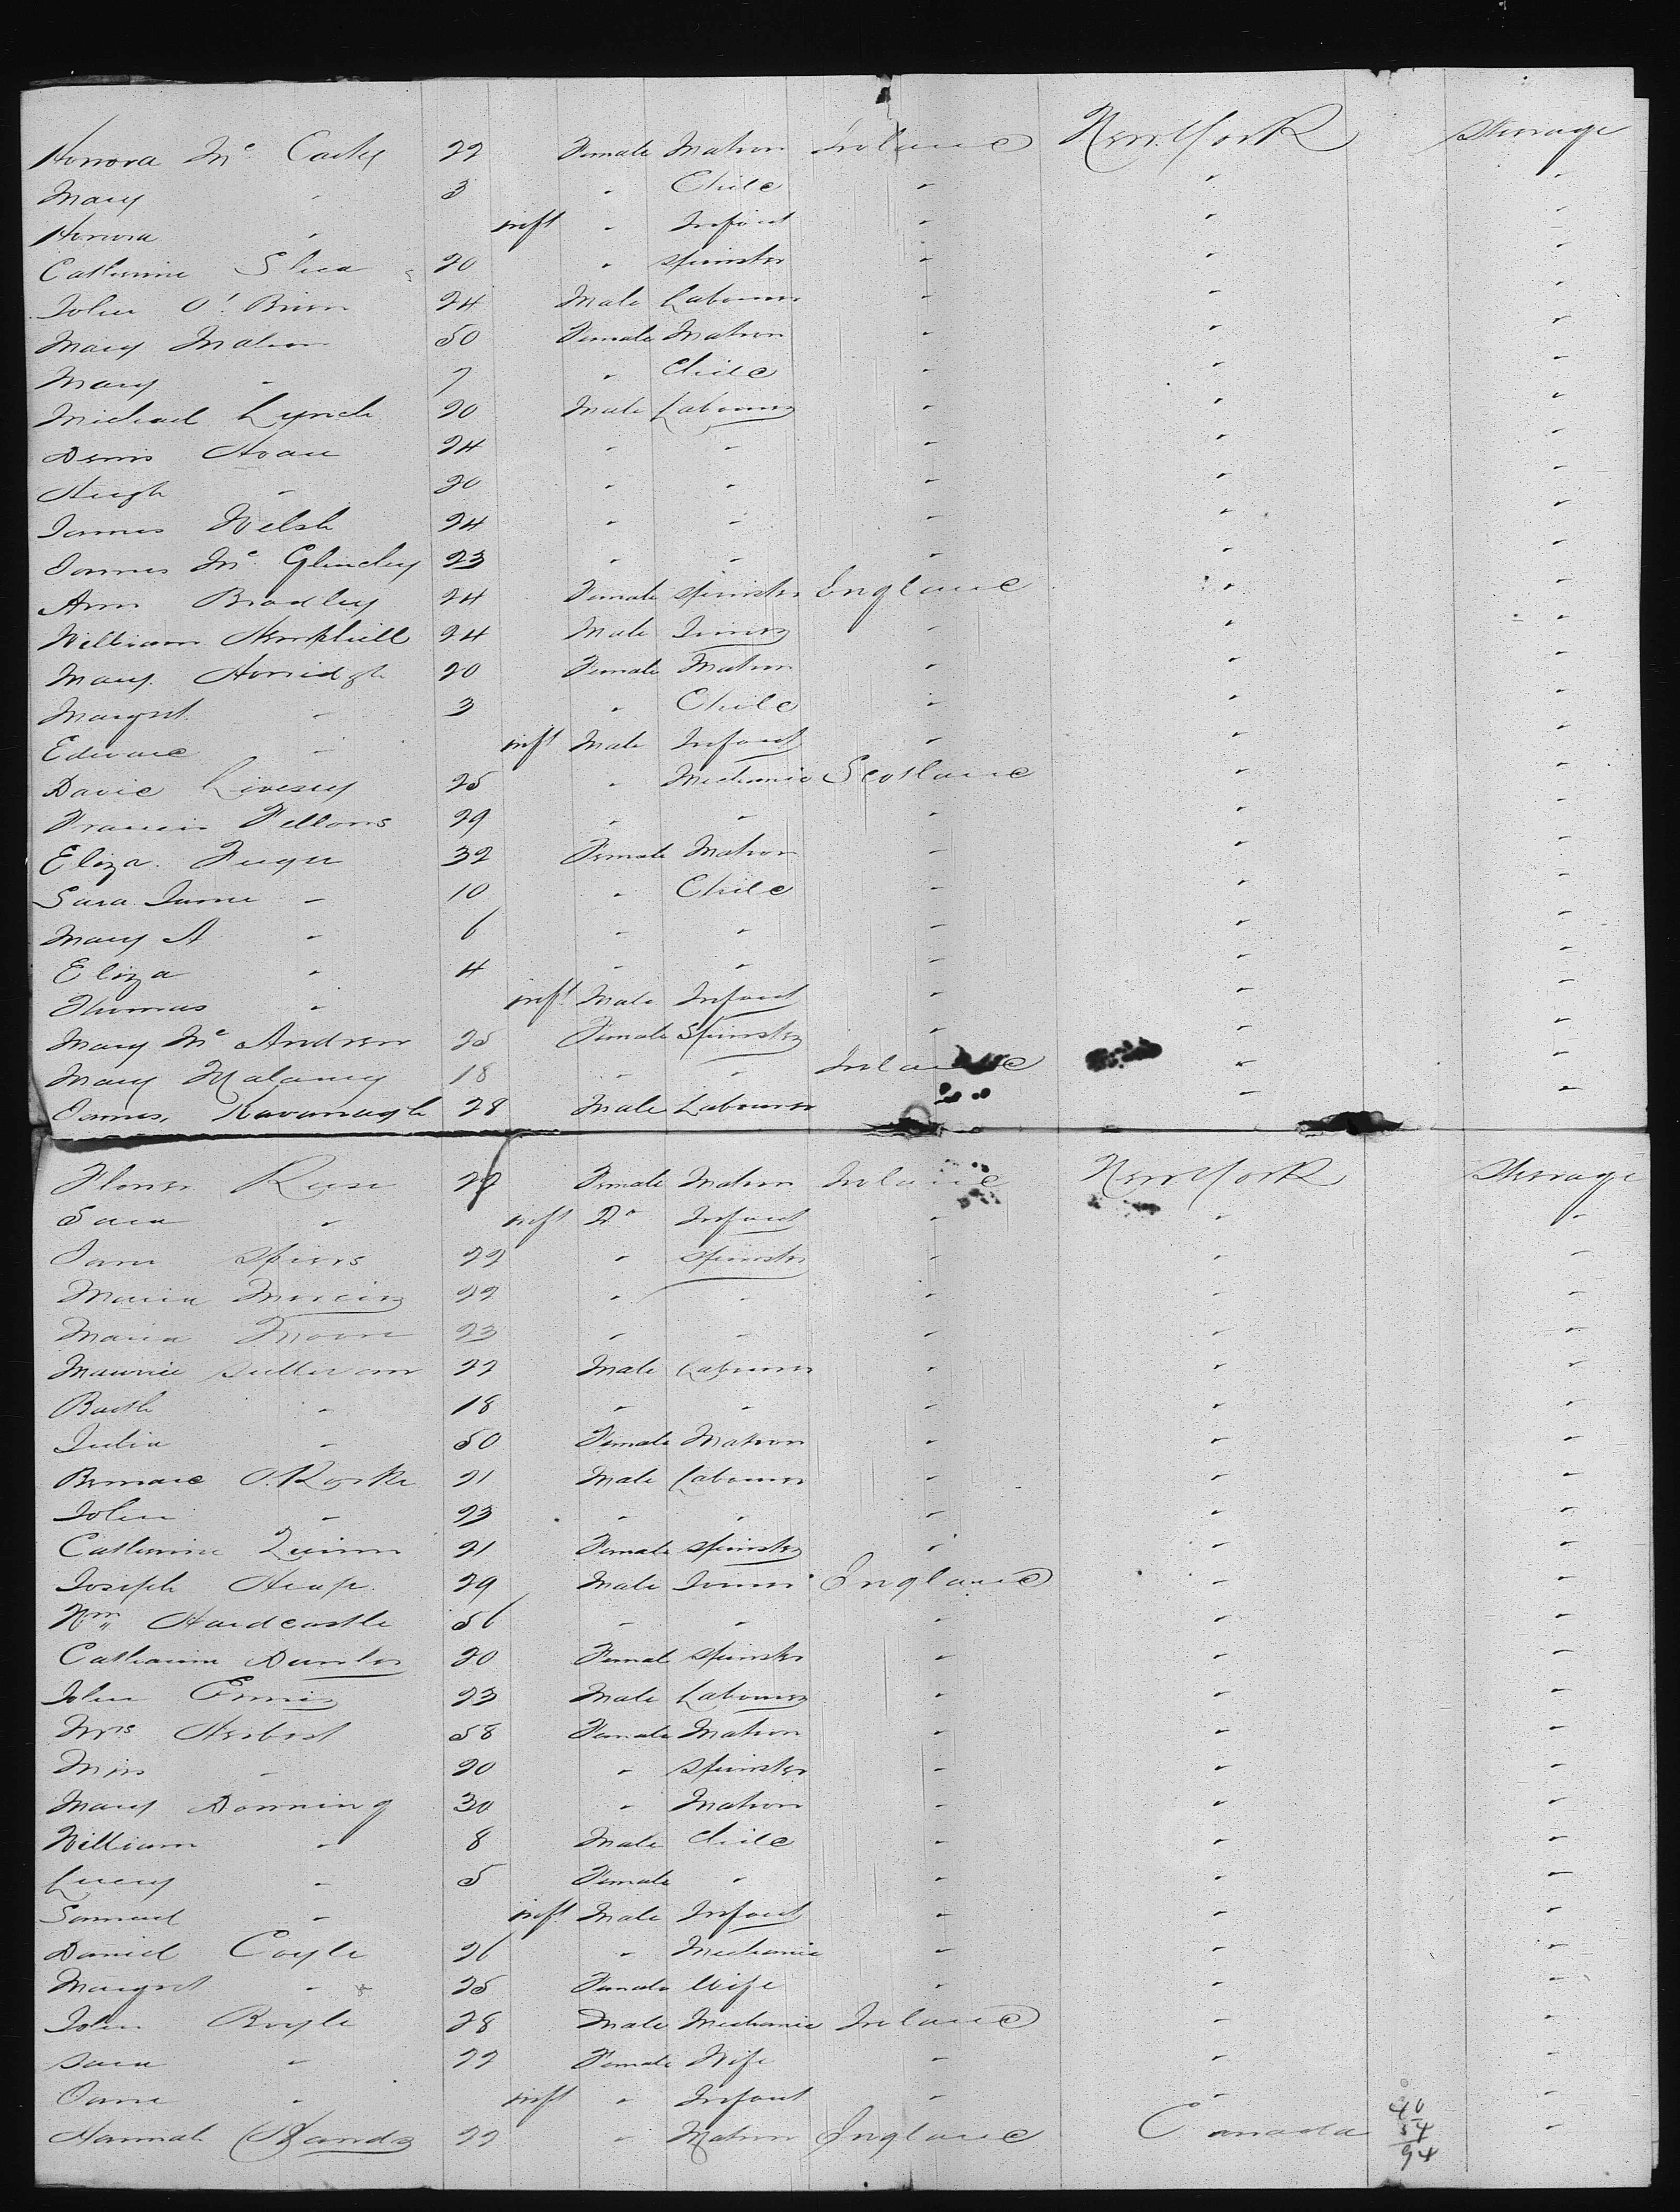 Honora Mc Carty 22 Female Matron Ireland New York Steerage
Mary " 3 " Child " " "
Honora " inft " Infant " " "
Catherine Shea 20 " Spinster " " "
John O'Brien 24 Male Labourer " " "
Mary Matson 50 Female Matron " " "
Mary " 7 " Child " " "
Michael Lynch 20 Male Labourer " " "
Denis Hoau 24 " " " " "
Hugh " 20 " " " " "
James Welsh 24 " " " " "
James Mc Glinchy 23 " " " " "
Ann Bradley 24 Female Spinster England " "
William Hemphill 24 Male Joiner " " "
Mary 20 Female Matron " " "
Margret " 3 " Child " " "
Edward " inft Male Infant " " "
David Livesey 25 " Mechanic Scotland " "
Francis Fellows 29 " " " " "
Eliza 32 Female Matron " " "
Sara Jane " 10 " Child " " "
Mary A " 6 " " " " "
Eliza " 4 " " " " "
Thomas " inft Male Infant " " "
Mary Mc Andrew 25 Female Spinster " " "
Mary Malaney 18 " " Ireland " "
James Kavanagh 28 Male Labourer " "
Rese Female Matron Ireland New York Steerage
Sara " inft Do Infant " " "
Jane Spiers 22 " Spinster " " "
Maria 22 " " " " "
Maria Moore 23 " " " " "
Maurice Sullivan 22 Male Labourer " " "
Barth " 18 " " " " "
Julia " 50 Female Matron " " "
Bernard O'Rorke 21 Male Labourer " " "
John " 23 " " " " "
Catherine Quinn 21 Female Spinster " " "
Joseph Heap 29 Male Joiner England " "
Wm Hardcastle 56 " " " " "
Catharine Dunlop 20 Female Spinster " " "
John 23 Male Labourer " " "
Mrs Herbert 58 Female Matron " " "
Miss " 20 " Spinster " " "
Mary Downing 30 " Matron " " "
William " 8 Male Child " " "
Lucy " 5 Female " " " "
Samuel " inft Male Infant " " "
Daniel Coyle 26 " Mechanic " " "
Margret " 25 Female Wife " " "
John Boyle 28 Male Mechanic Ireland " "
Sara " 22 Female Wife " " "
Jane " inft " Infant " " "
Hannah 22 " Matron England Canada "
40
54
94